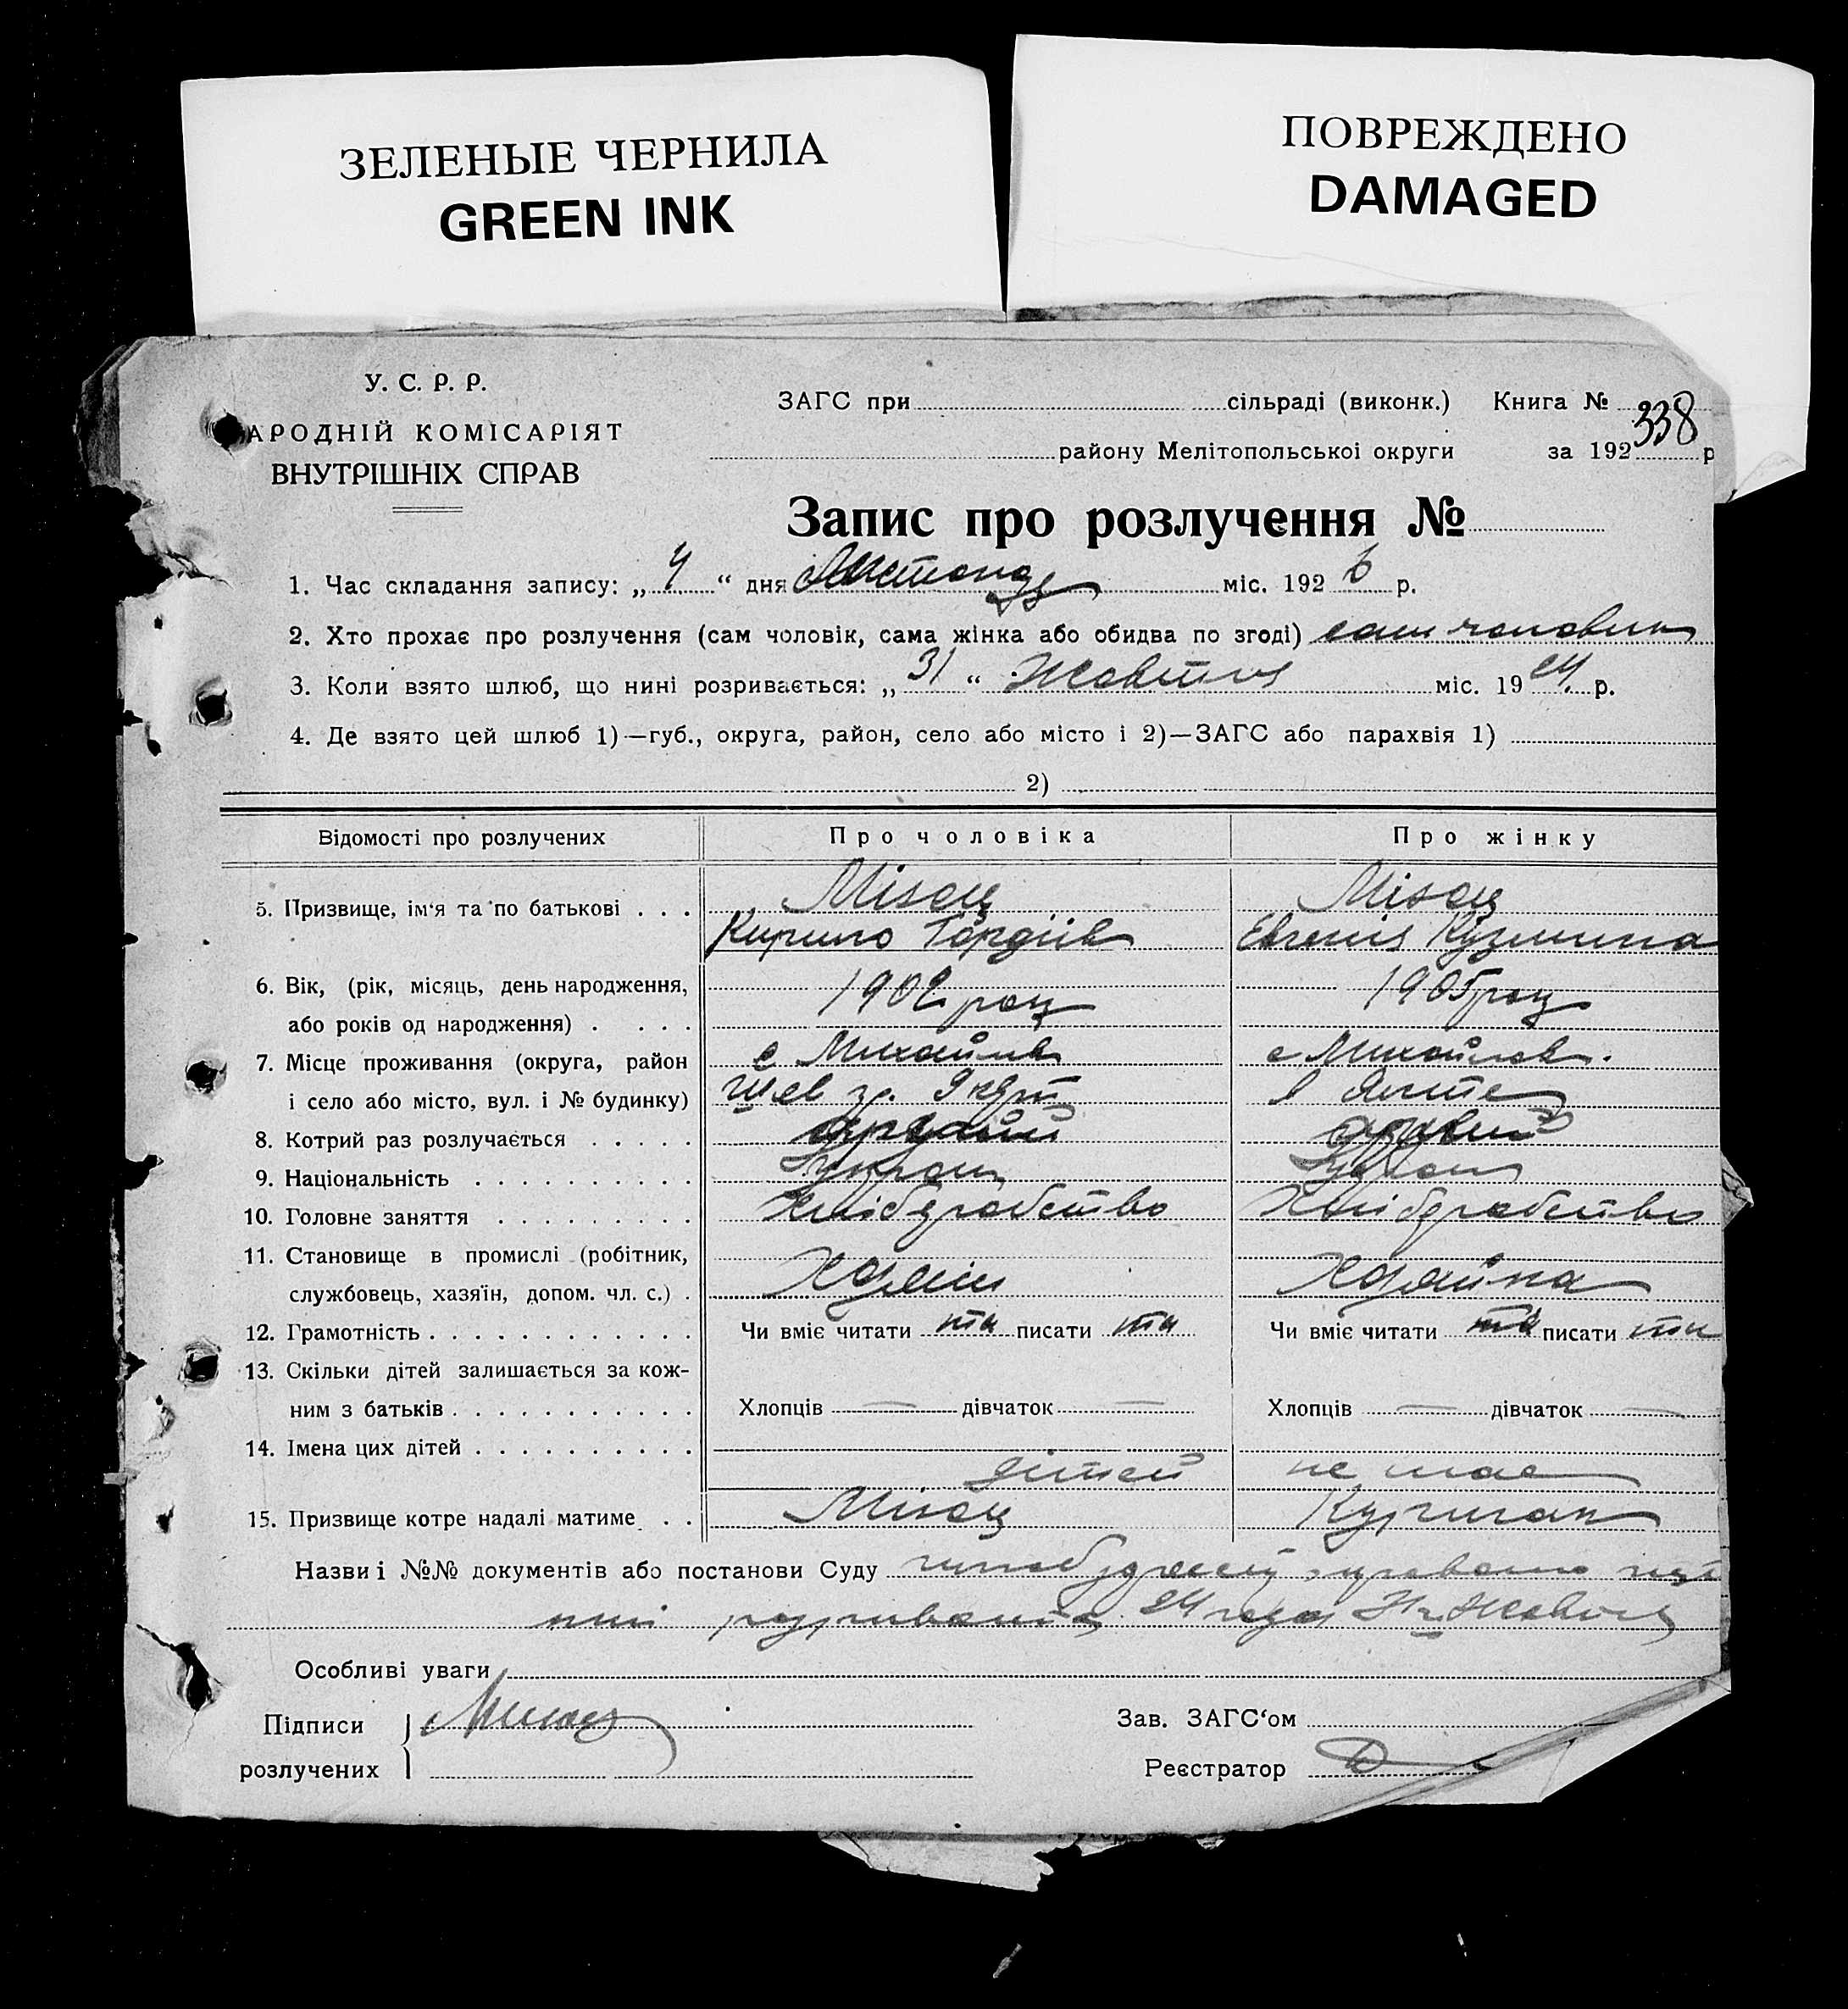 ЗЕЛЕНЫЕ ЧЕРНИЛА
GREEN INK
ПОВРЕЖДЕНО
DAMAGED
У. С. Р. Р.
АРОДНІЙ КОМІСАРІЯТ
ВНУТРІШНІХ СПРАВ
ЗАГС при сільраді (виконк.) Книга №
338
району Мелітопольської округи за 192 р
Запис про розлучення №
1. Час складання запису: „ 4 “ дня Листопаду міс. 192 6 р.
2. Хто прохає про розлучення (сам чоловік, сама жінка або обидва по згоді) сам чоловик
3. Коли взято шлюб, що нині розривається: „ 31 “ Жовтня міс. 19 24 р.
4. Де взято цей шлюб 1)—губ., округа, район, село або місто і 2)—ЗАГС або парахвія 1)
2)
Відомості про розлучених Про чоловіка Про жінку
5. Призвище, ім‘я та по батькові
Кирило Гордіїв Евгенія Кузминна
6. Вік, (рік, місяць, день народження, 1902 року 1905 року
або років од народження)
7. Місце проживання (округа, район с. Михайлів с Михайлов.
і село або місто, вул. і № будинку)
8. Котрий раз розлучається
9. Національність
10. Головне заняття Хліборобство Хліборобство
11. Становище в промислі (робітник,
службовець, хазяїн, допом. чл. с.) Хазяїн Хазяйка
12. Грамотність Чи вміє читати писати Чи вміє читати писати
13. Скільки дітей залишається за кож-
ним з батьків Хлопців — дівчаток — Хлопців — дівчаток —
14. Імена цих дітей
дітей не має
15. Призвище котре надалі матиме
Назви і №№ документів або постанови Суду
24 года
Особливі уваги
Підписи
розлучених
Зав. ЗАГС‘ом
Реєстратор